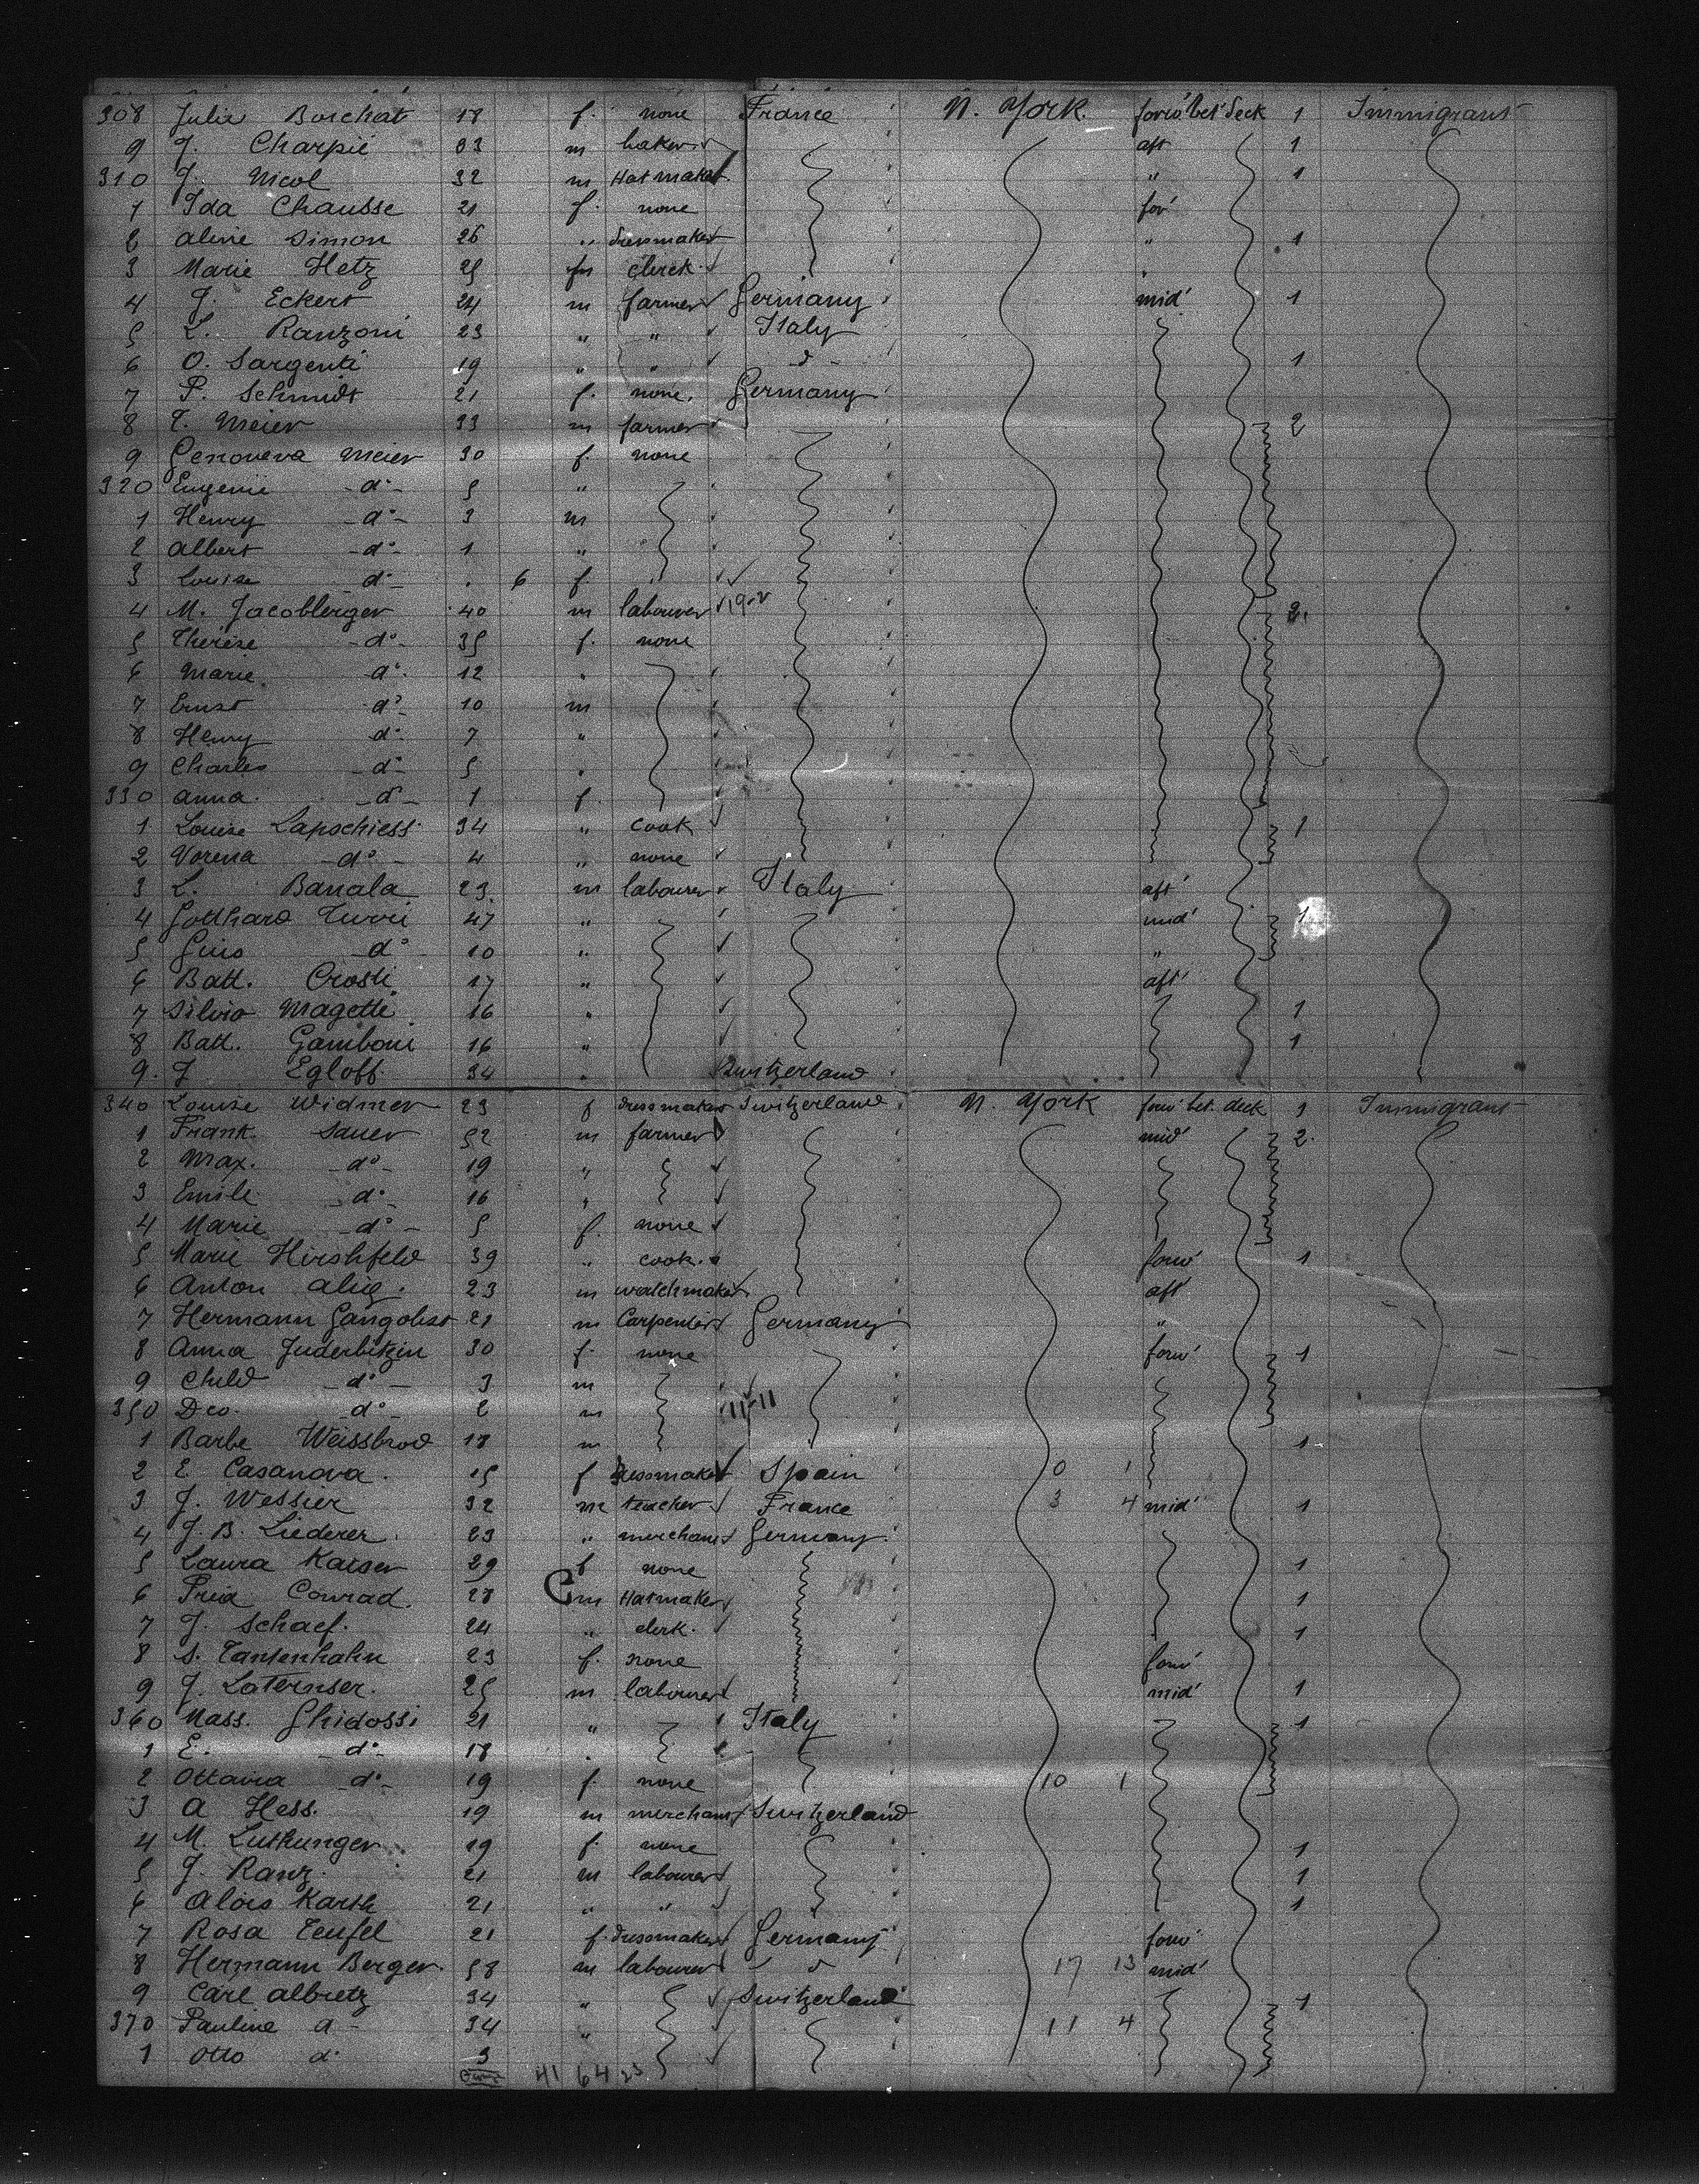 308 Julie Borchat 18 f. none France N. York forw' bet' deck 1 Immigrant
9 J. Charpié 33 m baker aft 1
310 J. Nicol 32 m Hatmaker " 1
1 Ida Chausse 21 f. none for'
2 Aline Simon 26 " dressmaker " 1
3 Marie Hetz 25 clerck "
4 J. Eckert 24 m farmer Germany mid' 1
5 L. Ranzoni 23 " " Italy
6 O. Sargenti 19 " " d - 1
7 P. Schmidt 21 f. none. Germany
8 T. Meier 33 m farmer 2
9 Genoveva Meier 30 f. none
320 Eugenie - d° - 5 "
1 Henry - d° - 3 m
2 Albert - d° - 1 "
3 Louise d° - . 6 f.
4 M. Jacobberger 40 m labourer 2
5 Therese - d° - 35 f. none
6 Marie - d° - 12 "
7 Ernst - d° - 10 m
8 Henry d° - 7 "
9 Charles - d° - 5 "
330 Anna - d° - 1 f.
1 Louise Lapschiess 34 " cook 1
2 Vorena - d° - 4 " none
3 L. Banala 23 m labourer Italy aft'
4 Gotthard Turri 47 " mid' 1
5 d° 10 " "
6 Batt. Crosti 17 " aft'
7 Silvio Magetti 16 " 1
8 Batt. Gamboni 16 " 1
9. J Egloff 34 " Switzerland
340 Louise Widmer 23 f dressmaker Switzerland N. York forw' bet. deck 1 Immigrant
1 Frank Sauer 52 m farmer mid' 2
2 Max. - d° - 19 "
3 Emile - d° - 16 "
4 Marie - d° - 5 f. none
5 Marie Hirshfeld 39 " cook forw' 1
6 Anton Alig. 23 m watchmaker aft'
7 Hermann 21 m Carpenter Germany "
8 Anna Juderbitzin 30 f. none forw' 1
9 Child - d° - 3 m
350 Dco. - d° - 2 m 11-11
1 Barbe Weissbrod 18 m 1
2 E Casanova. 15 f dressmaker Spain 0 1
3 J. Wessier 32 m teacher France 3 4 mid' 1
4 J. B. Liederer 23 " merchant Germany
5 Laura Kaiser 29 f none 1
6 Conrad. 28 m Hatmaker 1
7 J. Schaef. 24 " clerk. 1
8 S. Tantenhahn 23 f. none forw'
9 J. Laternser. 25 m labourer mid' 1
360 Mass. Ghidossi 21 " Italy 1
1 E. - d° - 18 "
2 Ottavia - d° - 19 f. none 10 1
3 A Hess. 19 m merchant Switzerland
4 M. Luthunger 19 f. none 1
5 J. Ranz. 21 m labourer 1
6 Alois Karth 21 " " 1
7 Rosa Teufel 21 f. dressmaker Germany forw'
8 Hermann Berger. 58 m labourer - d 17 13 mid'
9 Carl Albretz 34 " Switzerland 1
370 Pauline d - 34 " 11 4
1 Otto d° 3
41 64 23